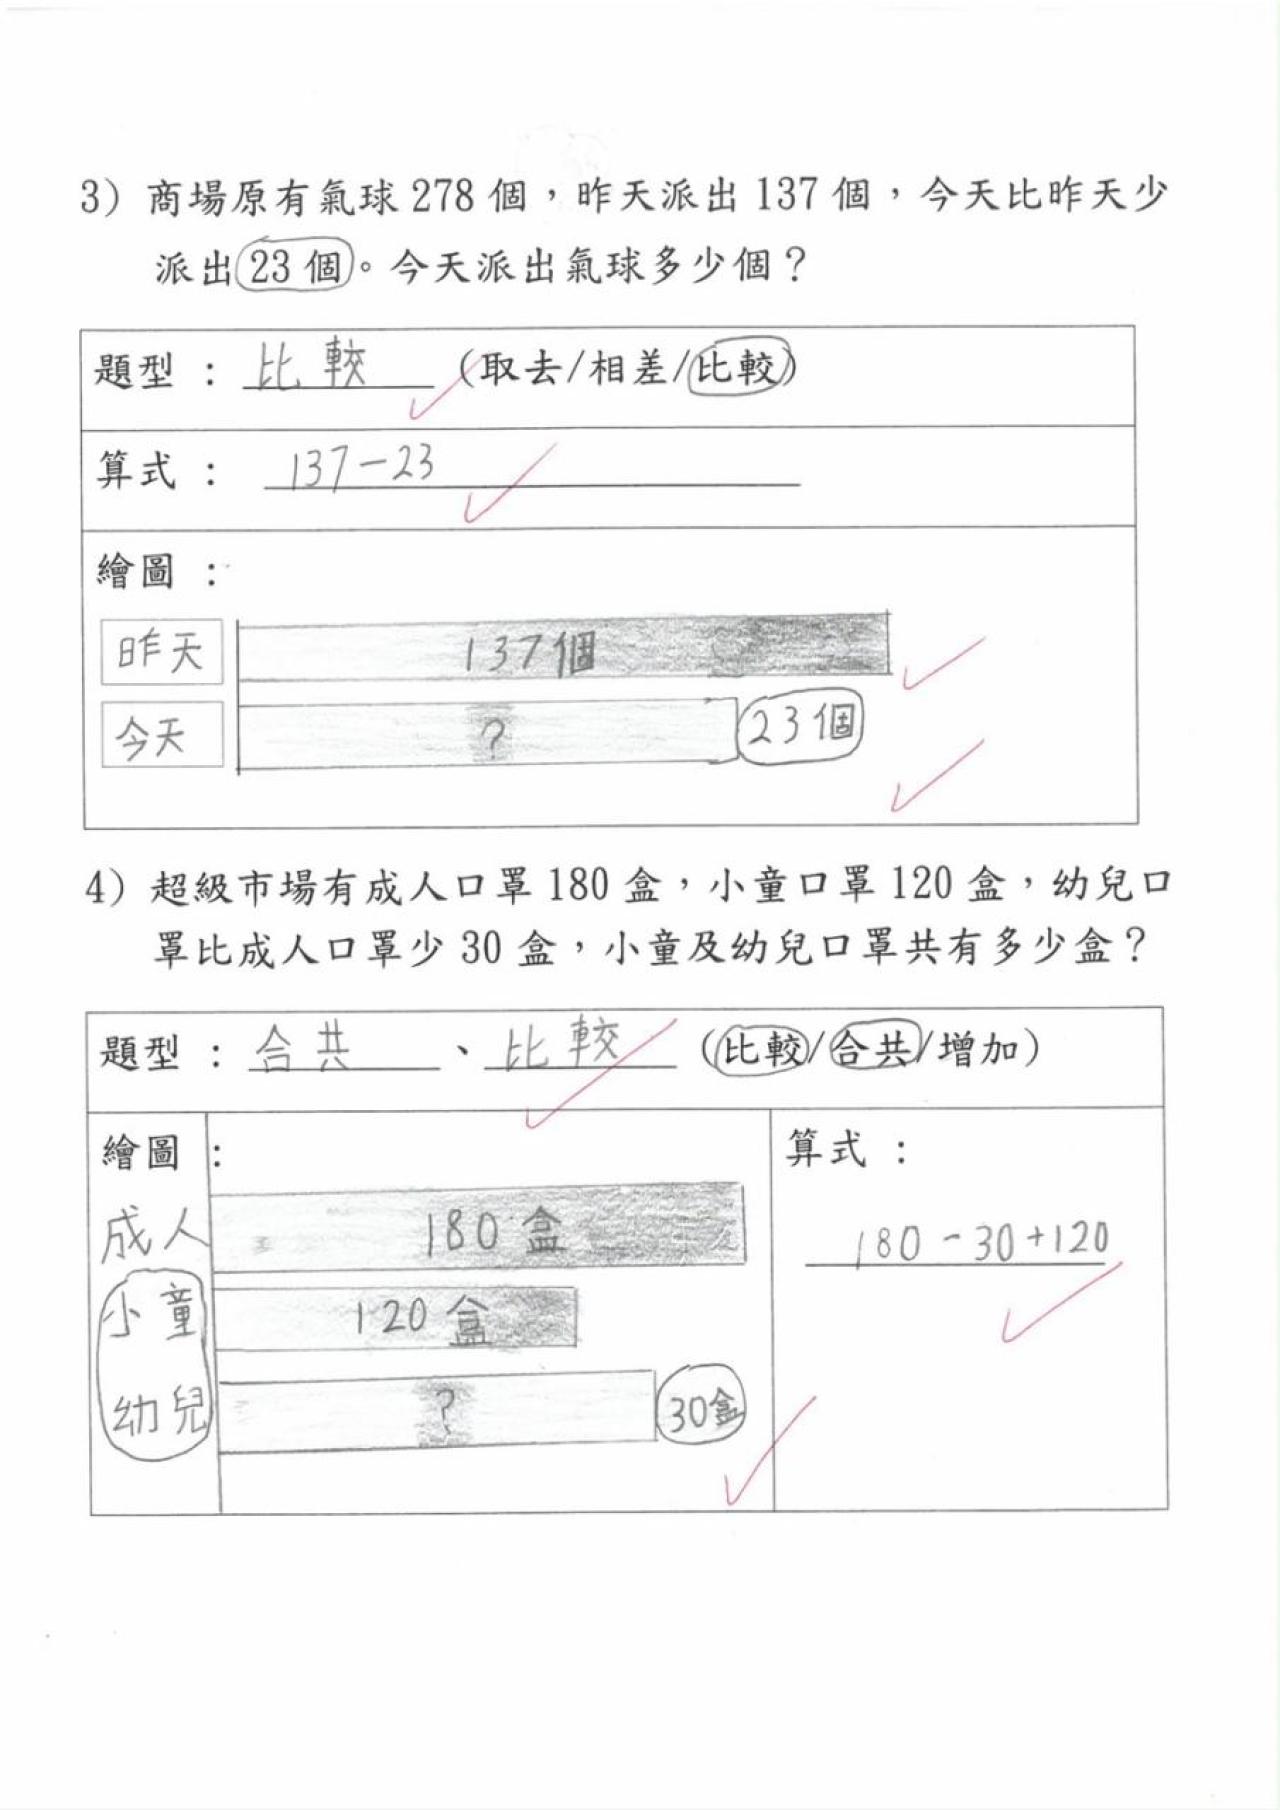 3) 商場原有氣球 278 個，昨天派出 137 個，今天比昨天少
派出 23 個。今天派出氣球多少個？
題型 ： 比較 (取去/相差/比較)
算式 ： 137-23
繪圖 ：
昨天 137個
今天 ? 23個
4) 超級市場有成人口罩 180 盒，小童口罩 120 盒，幼兒口
罩比成人口罩少 30 盒，小童及幼兒口罩共有多少盒？
題型 ： 合共 、 比較 (比較/合共/增加)
繪圖 ：
成人 180 盒
小童 120 盒
幼兒 ? 30盒
算式 ：
180-30+120